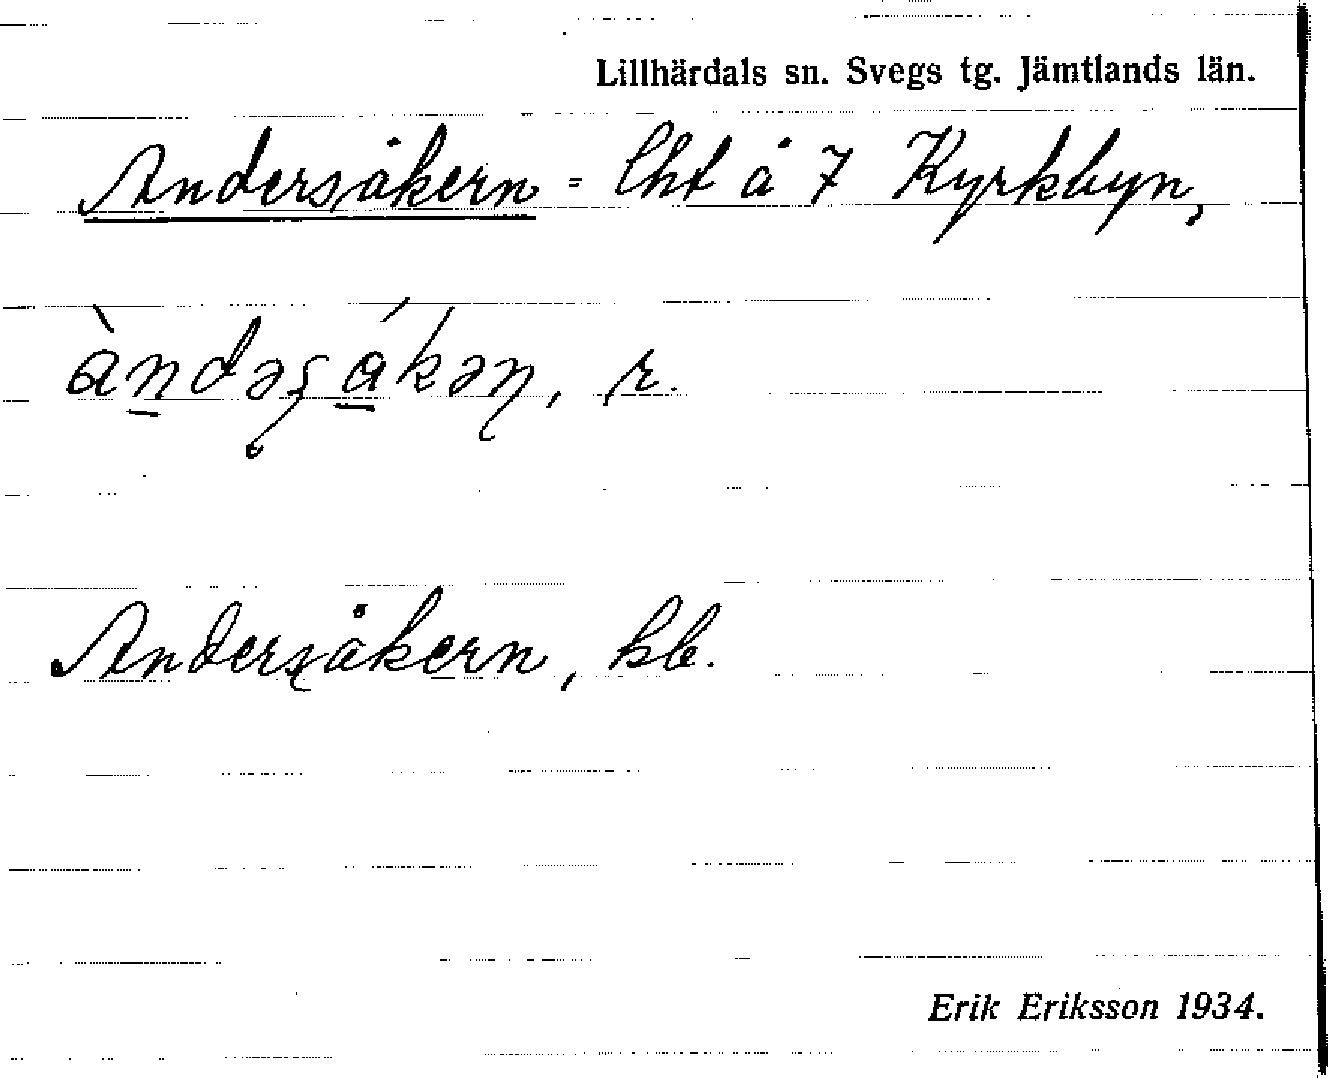 Lillhärdals sn. Svegs tg. Jämtlands län.
Andersåkern = lht å 7 Kyrkbyn,
àndəʂákəɳ, r.
Andersåkern, kb.
Erik Eriksson 1934.